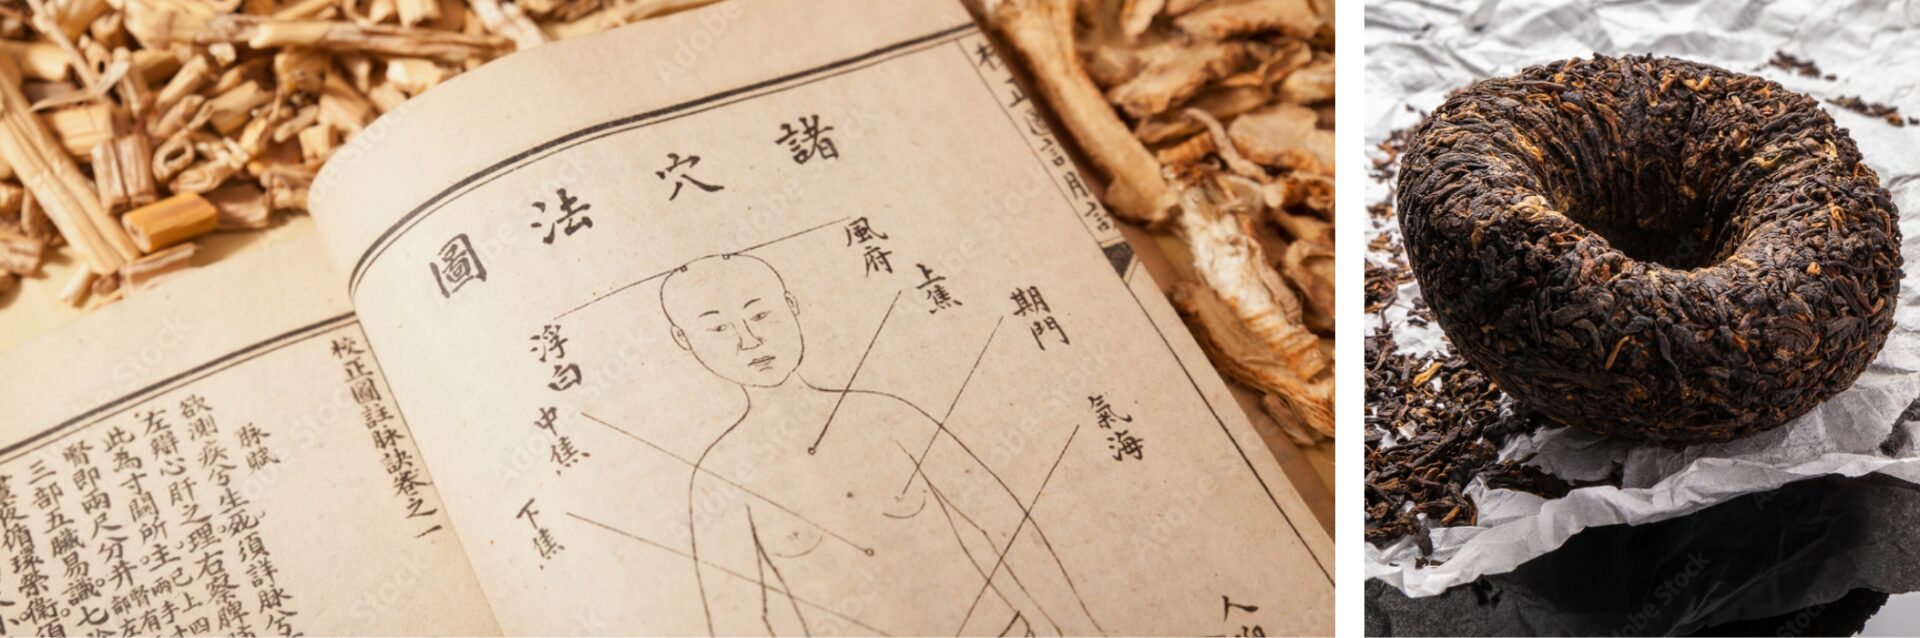 諸穴法圖
風府
上焦
期門
氣海
浮白
中焦
下焦
人
校正圖註脉訣卷之一
脉賦
欲測疾兮生死。須詳脉兮
左辯心肝之理。右察脾
此為寸關所主。
腎即兩尺分并。
三部五臟易識。七
晝夜循環榮衛。須
Adobe Stock